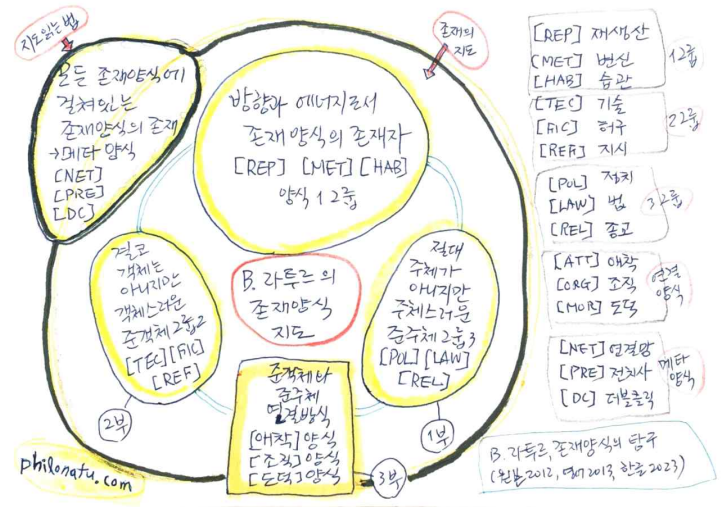 지도읽는 법
모든 존재양식에
걸쳐있는
존재양식의 존재
→메타 양식
[NET]
[PRE]
[DC]
존재의
지도
방향과 에너지로서
존재 양식의 존재자
[REP] [MET] [HAB]
양식 1 그룹
결코
객체는
아니지만
객체스러운
준객체 그룹2
[TEC] [FIC]
[REF]
2부
B. 라투르의
존재양식
지도
절대
주체가
아니지만
주체스러운
준주체 그룹3
[POL] [LAW]
[REL]
1부
준객체와
준주체
연결방식
[애착] 양식
[조직] 양식
[도덕] 양식
3부
philonatu.com
[REP] 재생산
[MET] 변신
[HAB] 습관
1그룹
[TEC] 기술
[FIC] 허구
[REF] 지시
2그룹
[POL] 정치
[LAW] 법
[REL] 종교
3그룹
[ATT] 애착
[ORG] 조직
[MOR] 도덕
연결
양식
[NET] 연결망
[PRE] 전치사
[DC] 더블클릭
메타
양식
B. 라투르, 존재양식의 탐구
(원본 2012, 영어 2013, 한글 2023)